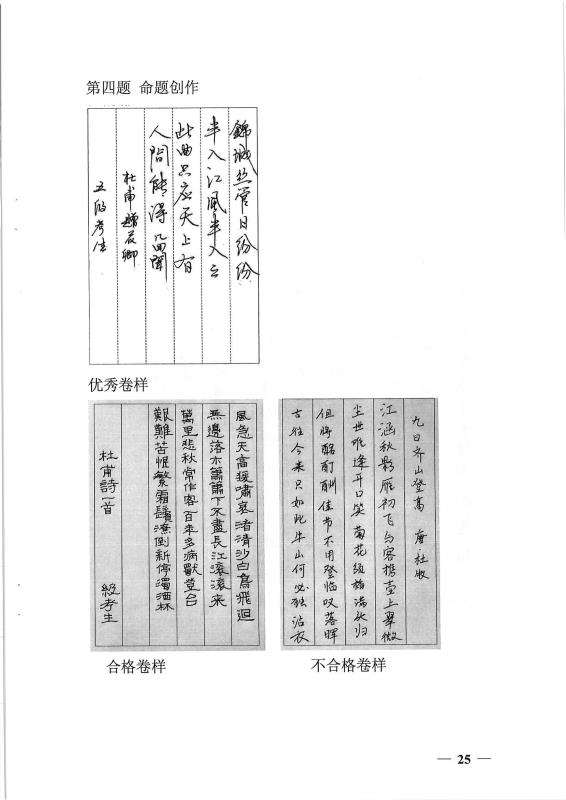 第四题 命题创作
錦城丝管日纷纷
半入江風半入云
此曲只应天上有
人間能得几回聞
杜甫贈花卿
五级考生
优秀卷样
風急天高猨嘯哀渚清沙白鳥飛迴
無邊落木蕭蕭下不盡長江滾滾来
萬里悲秋常作客百年多病獨登台
艱難苦恨繁霜鬢潦倒新停濁酒杯
杜甫詩一首
级考生
合格卷样
九日齐山登高 唐 杜牧
江涵秋影雁初飞与客携壶上翠微
尘世难逢开口笑 菊花须插满头归
但将酩酊酬佳节不用登临叹落晖
古往今来只如此牛山何必独沾衣
不合格卷样
— 25 —